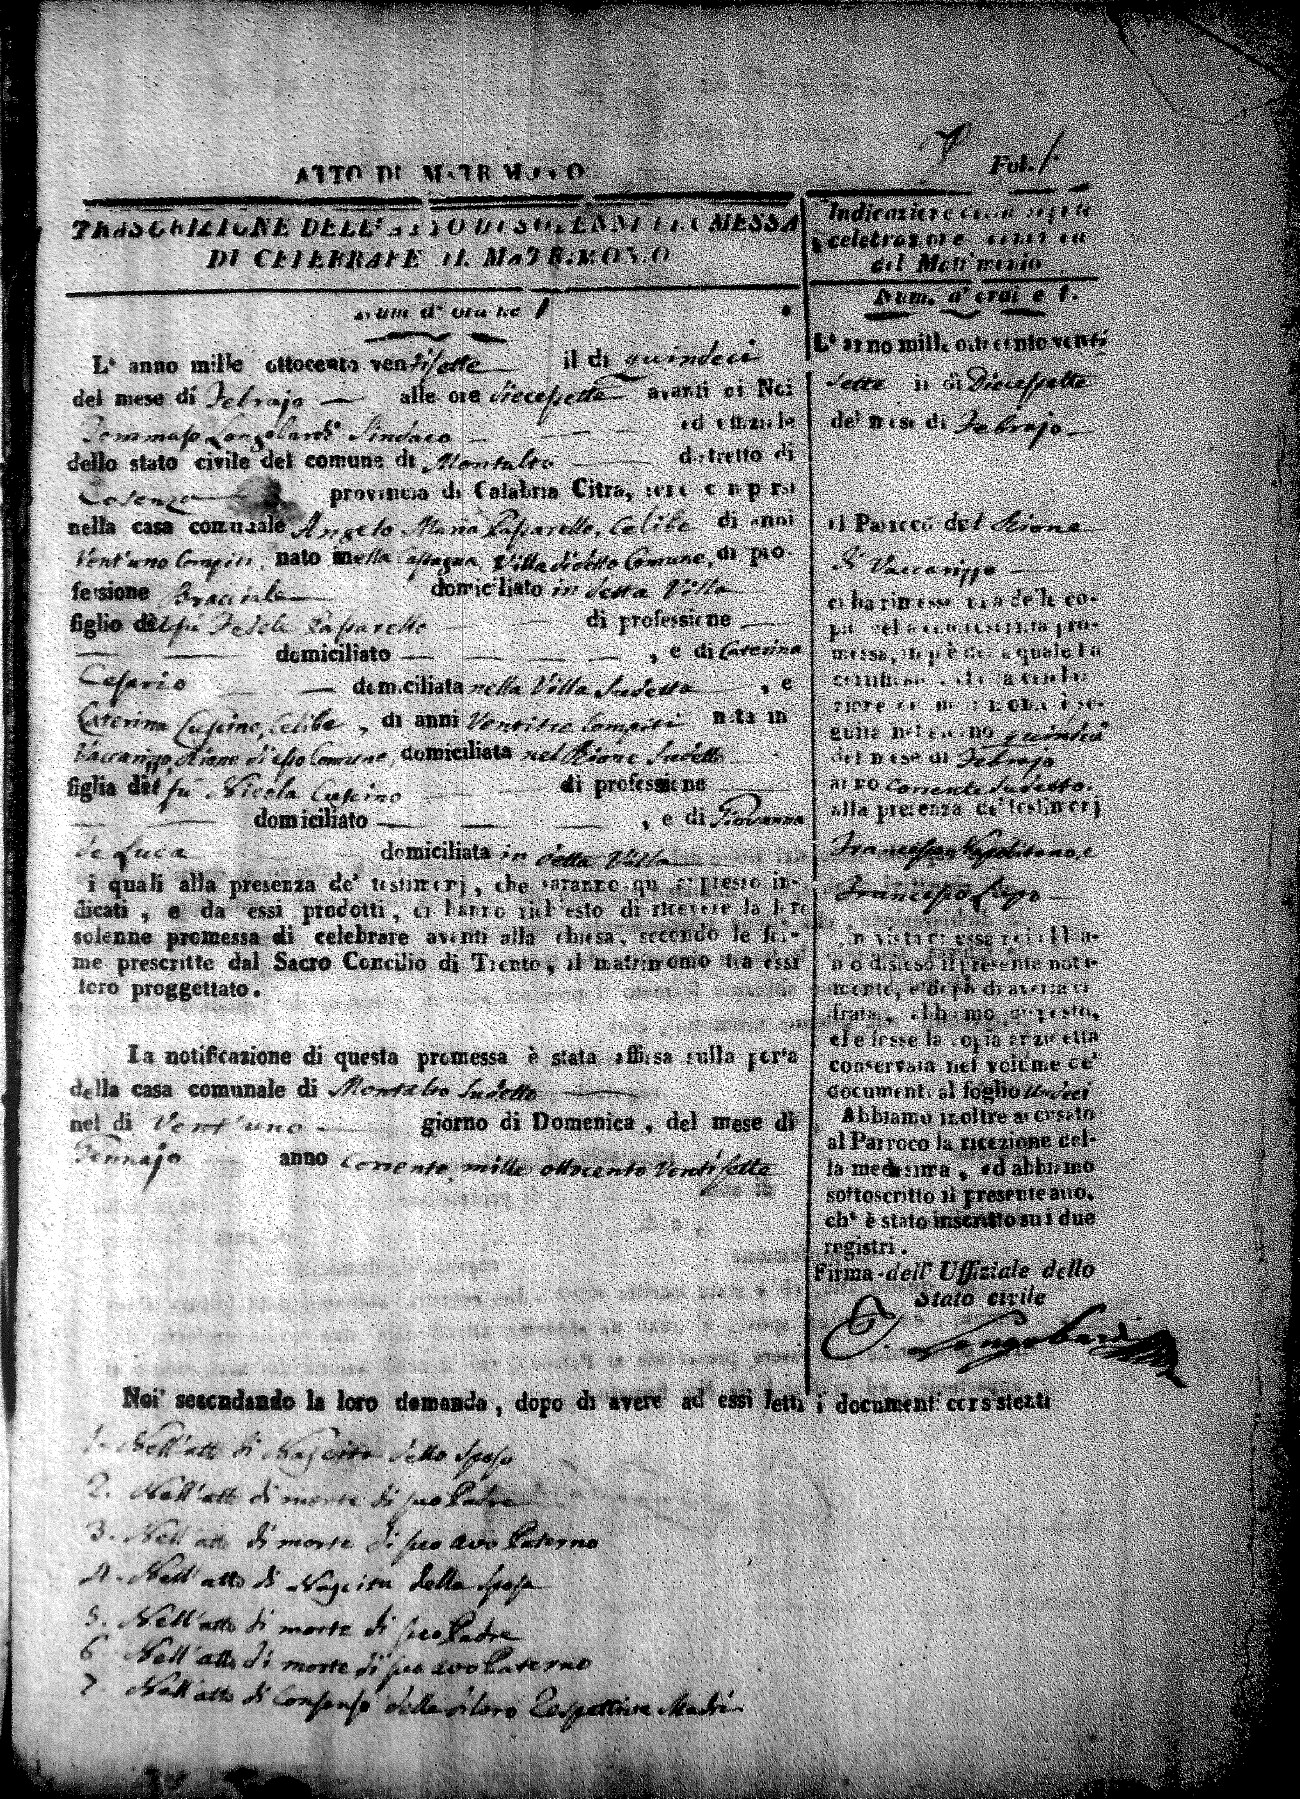 Fol. 1
ATTO DI MATRIMONIO
TRASCRIZIONE DELL' ATTO DI SOLENNE PROMESSA
DI CELEBRARE IL MATRIMONIO
Num. d' ordine 1
L' anno mille ottocento ventisette il di quindeci
del mese di Febrajo alle ore diecessette avanti di Noi
Tommaso Longobardi Sindaco ed uffiziale
dello stato civile del comune di Montalto distretto di
Cosenza provincia di Calabria Citra, sono comparsi
nella casa comunale Angelo Maria Passarello, Celibe di anni
Vent'uno Compiti, nato in nella Villa di detto Comune, di pro
fessione Bracciale domiciliato in detta Villa
figlio del fù Passarello di professione
domiciliato , e di Caterina
Cesario domiciliata nella Villa sudetta , e
Caterina Cuscino, Celibe , di anni Ventitre Compiti nata in
Vaccarizzo Rione di esso Comune, domiciliata nel Rione sudetto
figlia del fù Nicola Cuscino di professione
domiciliato , e di Giovanna
de Luca domiciliata in detta Villa
i quali alla presenza de' testimonj, che saranno qui appresso in-
dicati, e da essi prodotti, ci hanno richiesto di ricevere la loro
solenne promessa di celebrare avanti alla chiesa, secondo le for-
me prescritte dal Sacro Concilio di Trento, il matrimonio tra essi
loro proggettato.
La notificazione di questa promessa è stata affissa sulla porta
della casa comunale di Montalto sudetto
nel di Vent'uno giorno di Domenica, del mese di
Gennajo anno Corrente mille ottocento Ventisette
Indicazione della seguita
celebrazione canonica
del Matrimonio
Num. d' ordine 1.
L' anno mille ottocento venti
sette il di Diecessette
del mese di Febrajo
il Parroco del Rione
di Vaccarizzo
ci ha rimesso una delle co-
pie della controscritta pro-
messa, in piè della quale ha
certificato che la celebra-
zione del matrimonio è se-
guita nel giorno quindici
del mese di Febrajo
anno Corrente sudetto.
alla presenza de' testimonj
Francesco Napolitano, e
Francesco Lupo
In vista di essa noi abbia-
mo disteso il presente noti-
mento, e dopo di averla ci-
frata, abbiamo disposto,
che fosse la copia anzidetta
conservata nel volume de'
documenti al foglio undeci
Abbiamo inoltre accusato
al Parroco la ricezione del-
la medesima, ed abbiamo
sottoscritto il presente atto,
ch' è stato inscritto su i due
registri.
Firma dell' Uffiziale dello
Stato civile
T. Longobardi
Noi secondando la loro domanda, dopo di avere ad essi letti i documenti consistenti
1. Nell'atto di Nascita dello sposo
2. Nell'atto di morte di suo Padre
3. Nell'atto di morte di suo avo Paterno
4. Nell'atto di Nascita della sposa
5. Nell'atto di morte di suo Padre
6. Nell'atto di morte di suo avo Paterno
7. Nell'atto di Consenso delle di loro Respettive Madri